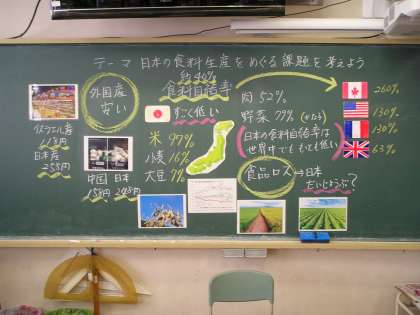 テーマ 日本の食料生産をめぐる課題を考えよう
約40%
食料自給率
外国産
安い
すごく低い
イスラエル産
118円
日本産
255円
中国 日本
158円 248円
米 97%
小麦 16%
大豆 7%
肉 52%
野菜 77%
日本の食料自給率は
世界中でもっとも低い
食品ロス→日本
だいじょうぶ?
260%
130%
130%
63%